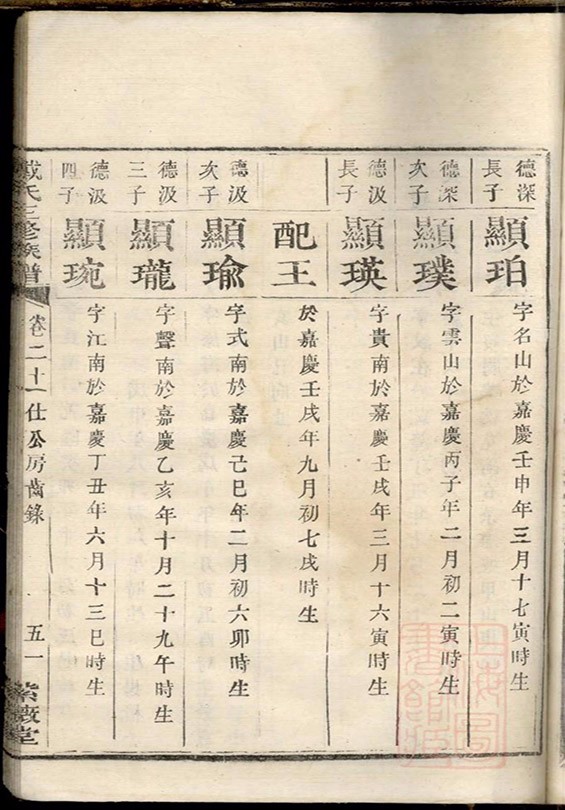 德深長子 顯珀 字名山於嘉慶壬申年三月十七寅時生
德深次子 顯璞 字雲山於嘉慶丙子年二月初二寅時生
德汲長子 顯瑛 字貴南於嘉慶壬戌年三月十六寅時生
配王 於嘉慶壬戌年九月初七戌時生
德汲次子 顯瑜 字式南於嘉慶己巳年二月初六卯時生
德汲三子 顯瓏 字聲南於嘉慶乙亥年十月二十九午時生
德汲四子 顯琬 字江南於嘉慶丁丑年六月十三巳時生
戴氏三修族譜 卷二十一 仕公房齒錄 五一 紫薇堂